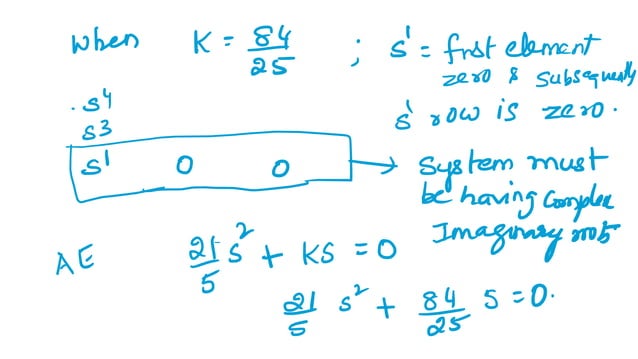 When K = 84/25 ; s' = first element
zero & subsequently
s' row is zero.
s4
s3
s1 0 0 → System must
be having complex
Imaginary roots
AE 21/5 s² + KS = 0
21/5 s² + 84/25 s = 0.